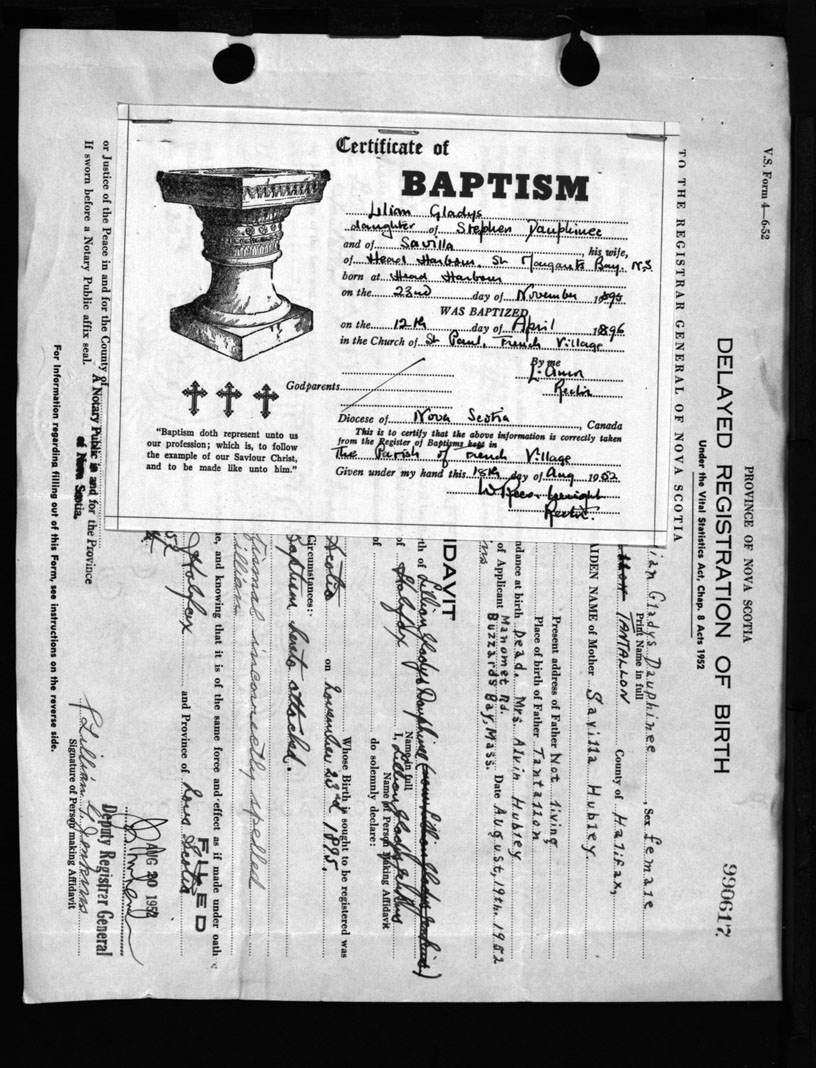 Certificate of
BAPTISM
Lilian Gladys
daughter of Stephen Dauphinee
and of Savilla, his wife,
of Head Harbour, St Margarets Bay. N.S.
born at Head Harbour
on the 23rd day of November 1895
WAS BAPTIZED
on the 12th day of April 1896
in the Church of St Paul, French Village
By me
Rector
Godparents
Diocese of Nova Scotia, Canada
This is to certify that the above information is correctly taken
from the Register of Baptisms kept in
The Parish of French Village
Given under my hand this 18th day of Aug 1952
Rector.
"Baptism doth represent unto us
our profession; which is, to follow
the example of our Saviour Christ,
and to be made like unto him."
V.S. Form 4—6-52
PROVINCE OF NOVA SCOTIA
990617
DELAYED REGISTRATION OF BIRTH
Under the Vital Statistics Act, Chap. 8 Acts 1952
TO THE REGISTRAR GENERAL OF NOVA SCOTIA
ian Gladys Dauphinee, Sex female
Print Name in full
TANTALLON County of Halifax,
AIDEN NAME of Mother Savilla Hubley.
Present address of Father Not living
Place of birth of Father Tantallon
ndance at birth Dead. Mrs Alvin Hubley
of Applicant Manomet Rd. Date August, 19th. 1952
Buzzards Bay, Mass.
IDAVIT
th of Lillian Gladys Dauphinee (now Lillian Gladys Jenkins)
Name in full
I, Lillian Gladys Jenkins
Name of Person Making Affidavit
of Halifax
of do solemnly declare:
Whose Birth is sought to be registered was
Scotia on November 23rd 1895.
Circumstances:
Baptism hereto attached.
tismal incorrectly spelled
illian
e, and knowing that it is of the same force and effect as if made under oath
Halifax and Province of Nova Scotia
FILED
AUG 20 1952
Deputy Registrar General
Lillian G. Jenkins
Signature of Person making Affidavit
or Justice of the Peace in and for the County of
A Notary Public in and for the Province
of Nova Scotia.
If sworn before a Notary Public affix seal.
For Information regarding filling out of this Form, see instructions on the reverse side.